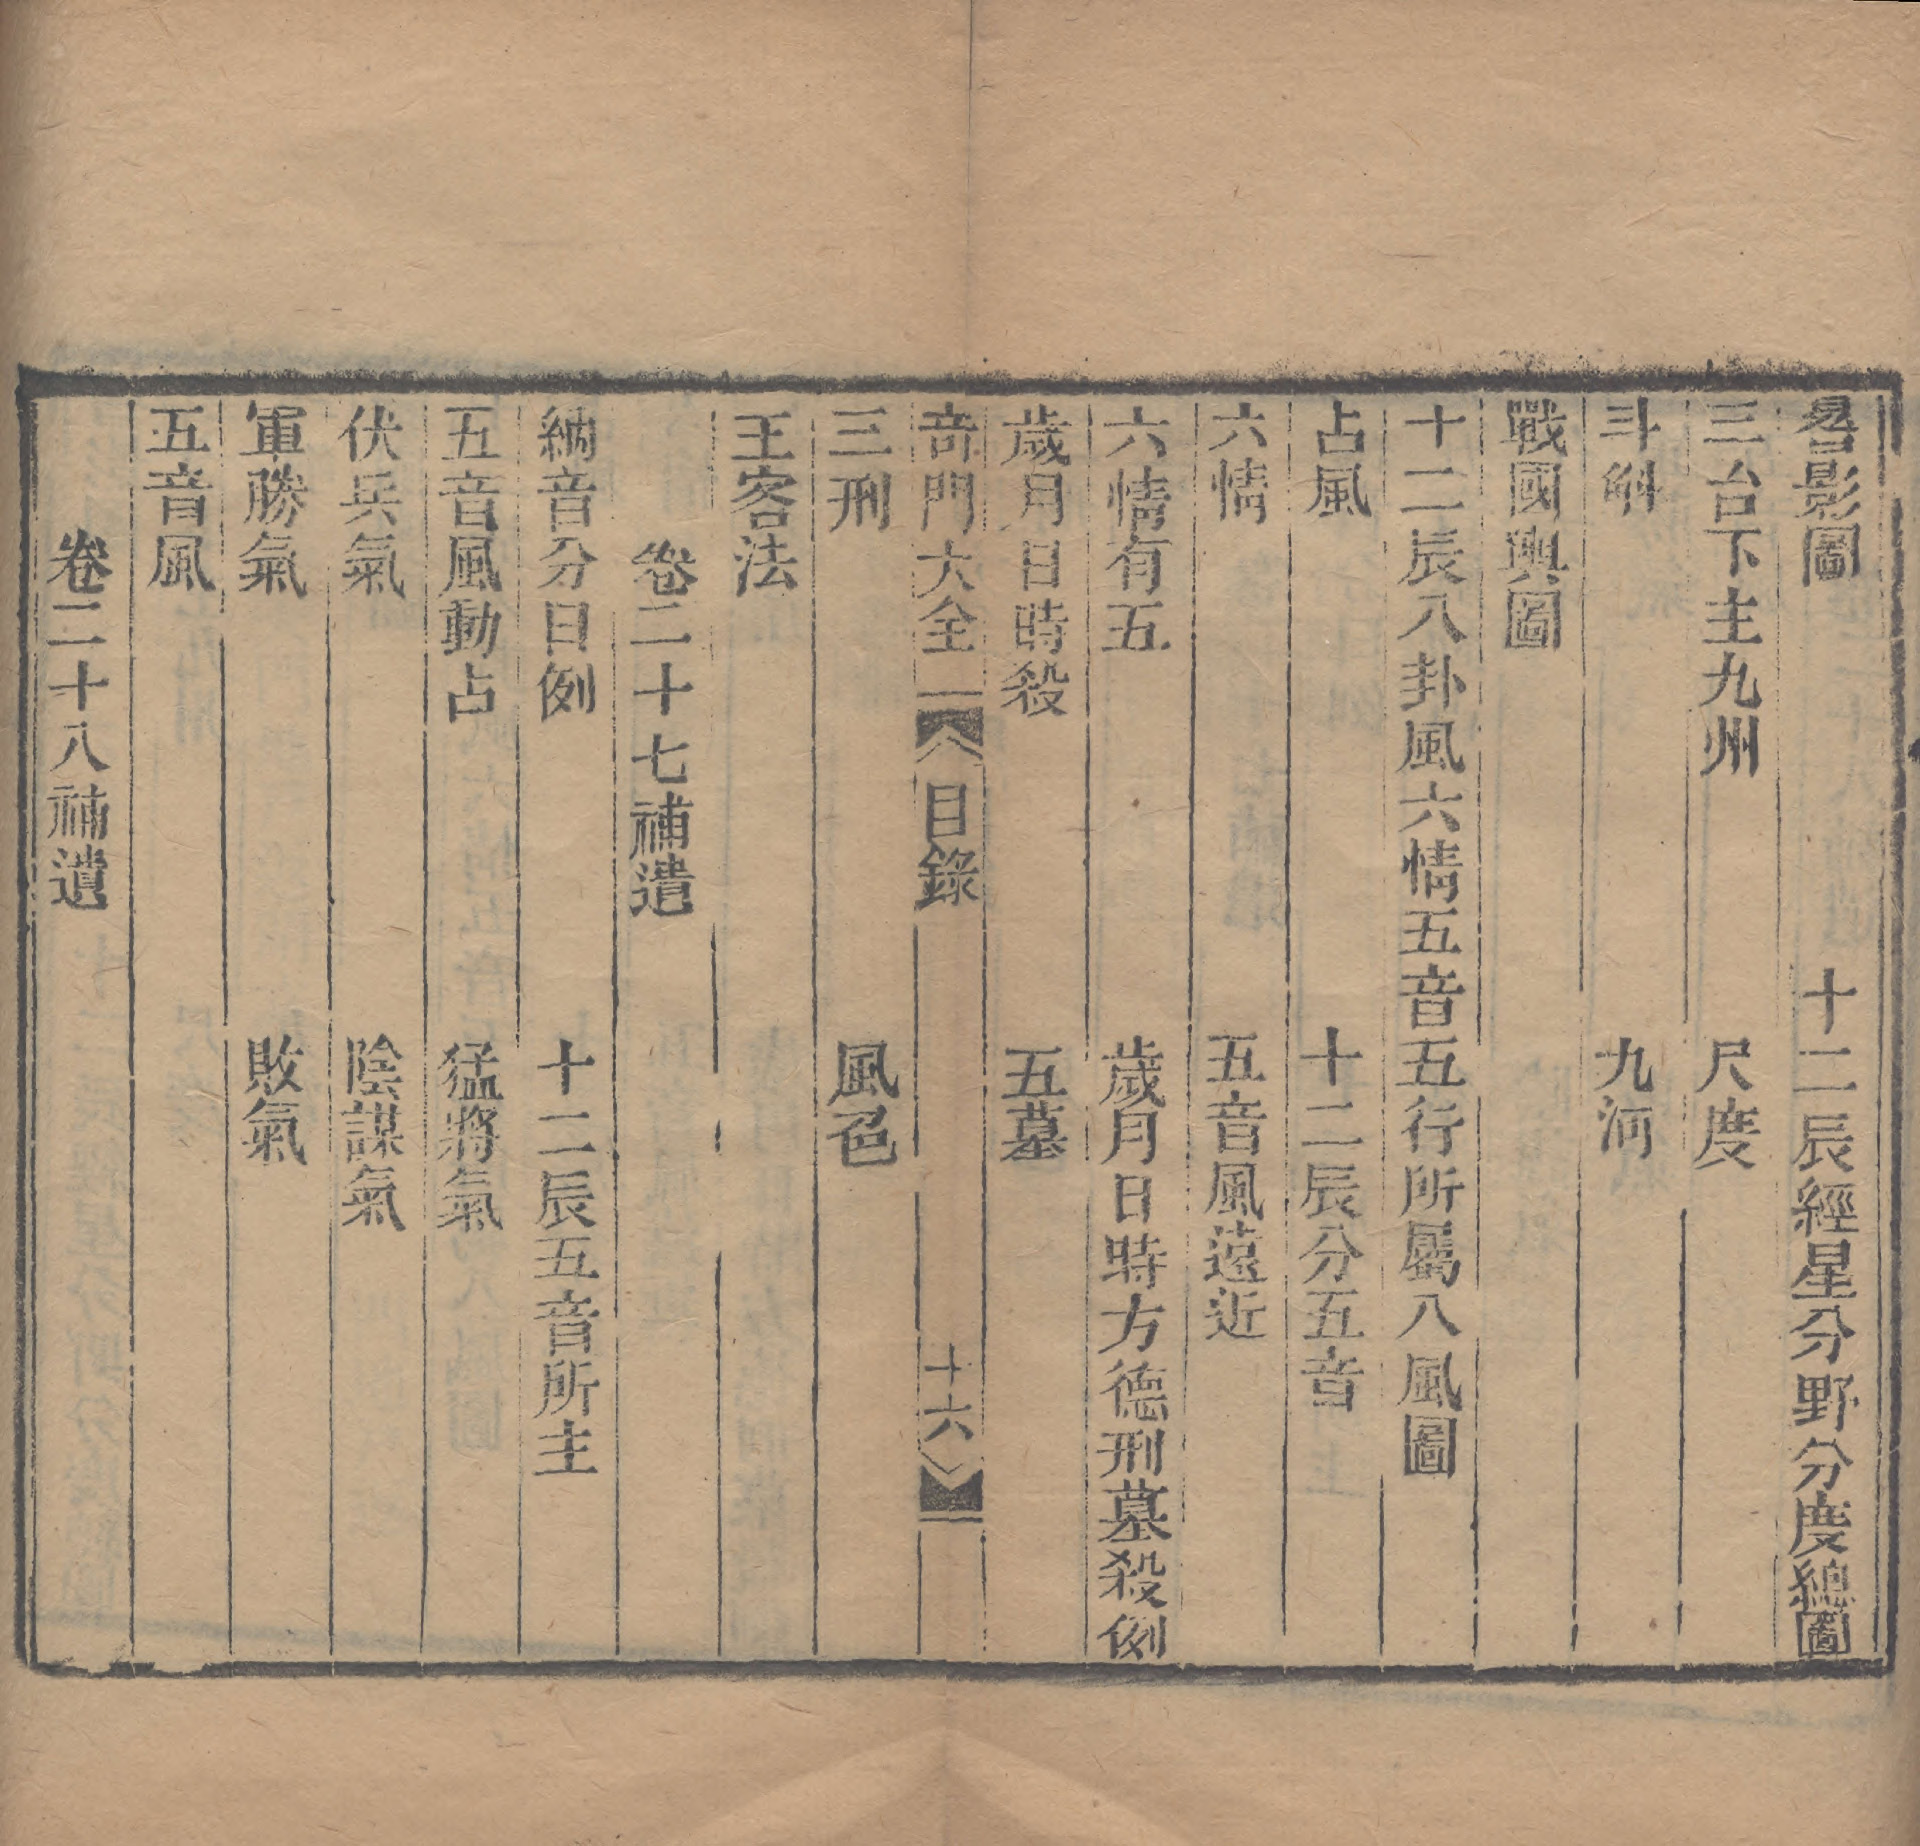 晷影圖　十二辰經星分野分度總圖
三台下主九州　尺度
斗斛　九河
戰國輿圖
十二辰八卦風六情五音五行所屬八風圖
占風　十二辰分五音
六情　五音風遠近
六情有五　歲月日時方德刑墓殺例
歲月日時殺　五墓
奇門大全　目錄　十六
三刑　風色
王客法
卷二十七補遺
納音分日例　十二辰五音所主
五音風動占　猛將氣
伏兵氣　陰謀氣
軍勝氣　敗氣
五音風
卷二十八補遺